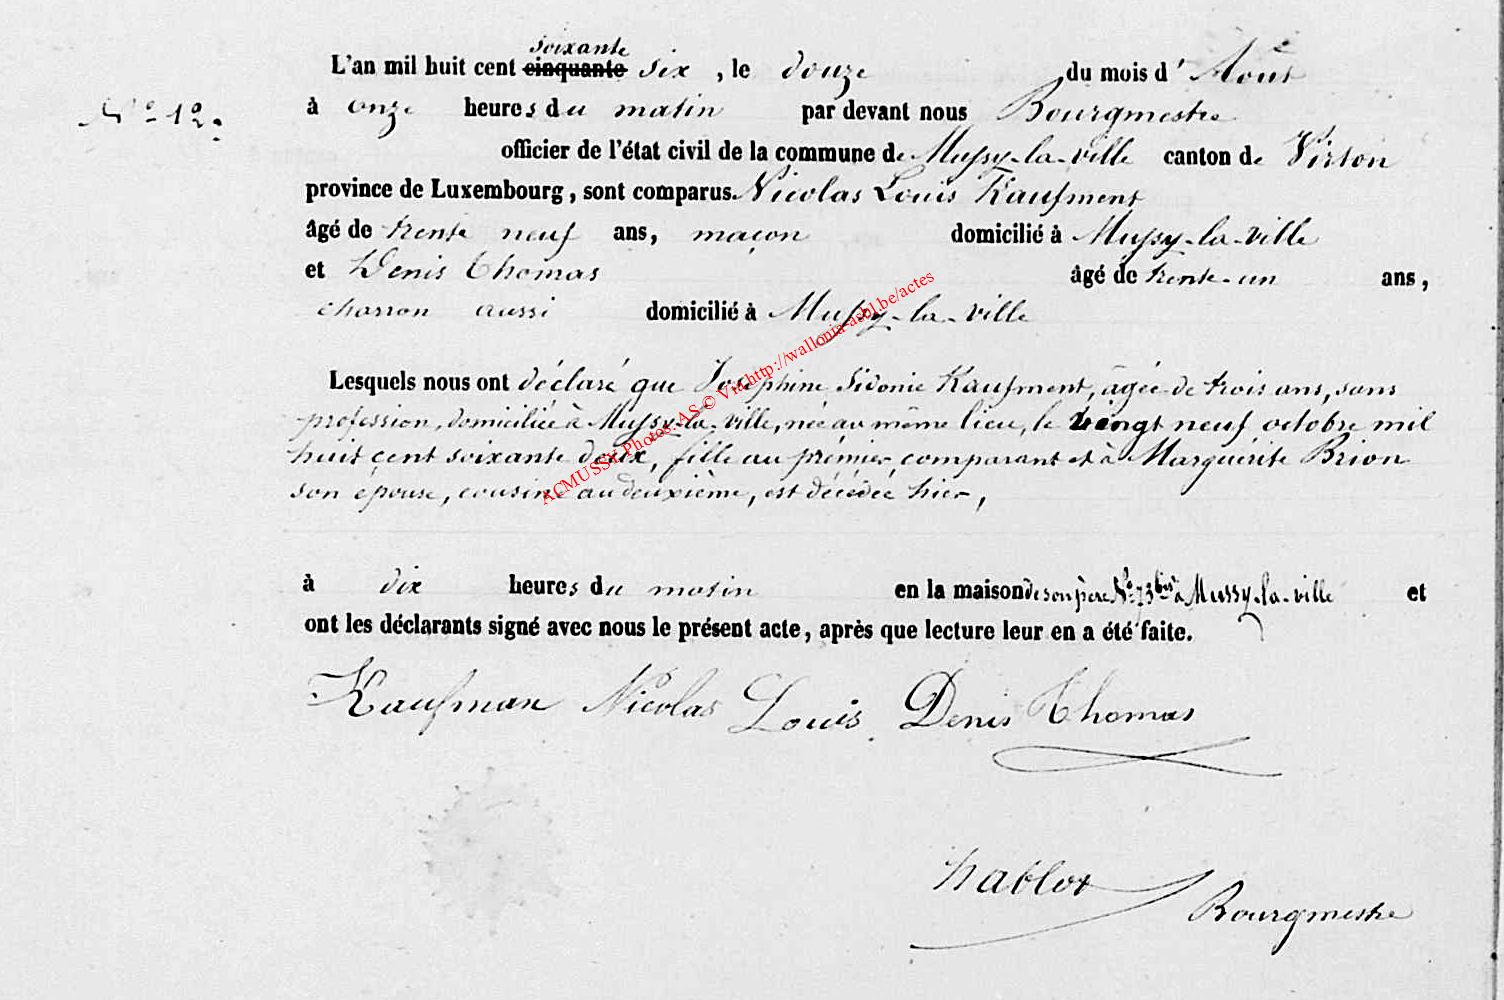 soixante
L'an mil huit cent cinquante six, le douze du mois d'Août
N° 12.
à onze heures du matin par devant nous Bourgmestre
officier de l'état civil de la commune de Mussy-la-ville canton de Virton
province de Luxembourg, sont comparus Nicolas Louis Kaufment
âgé de trente neuf ans, maçon domicilié à Mussy-la-ville
et Denis Thomas âgé de trente-un ans,
charron aussi domicilié à Mussy-la-ville
Lesquels nous ont déclaré que Joséphine Sidonie Kaufment, âgée de trois ans, sans
profession, domiciliée à Mussy-la-ville, née au même lieu, le vingt neuf octobre mil
huit cent soixante deux, fille au prémier comparant et à Marguérite Brion
son épouse, cousine au deuxième, est décédée hier,
à dix heures du matin en la maison de son père N° 73 bis à Mussy-la-ville et
ont les déclarants signé avec nous le présent acte, après que lecture leur en a été faite.
Kaufman Nicolas Louis. Denis Thomas
hablot
Bourgmestre
ACMUSSY Photos: AS © Via http://wallonia-asbl.be/actes